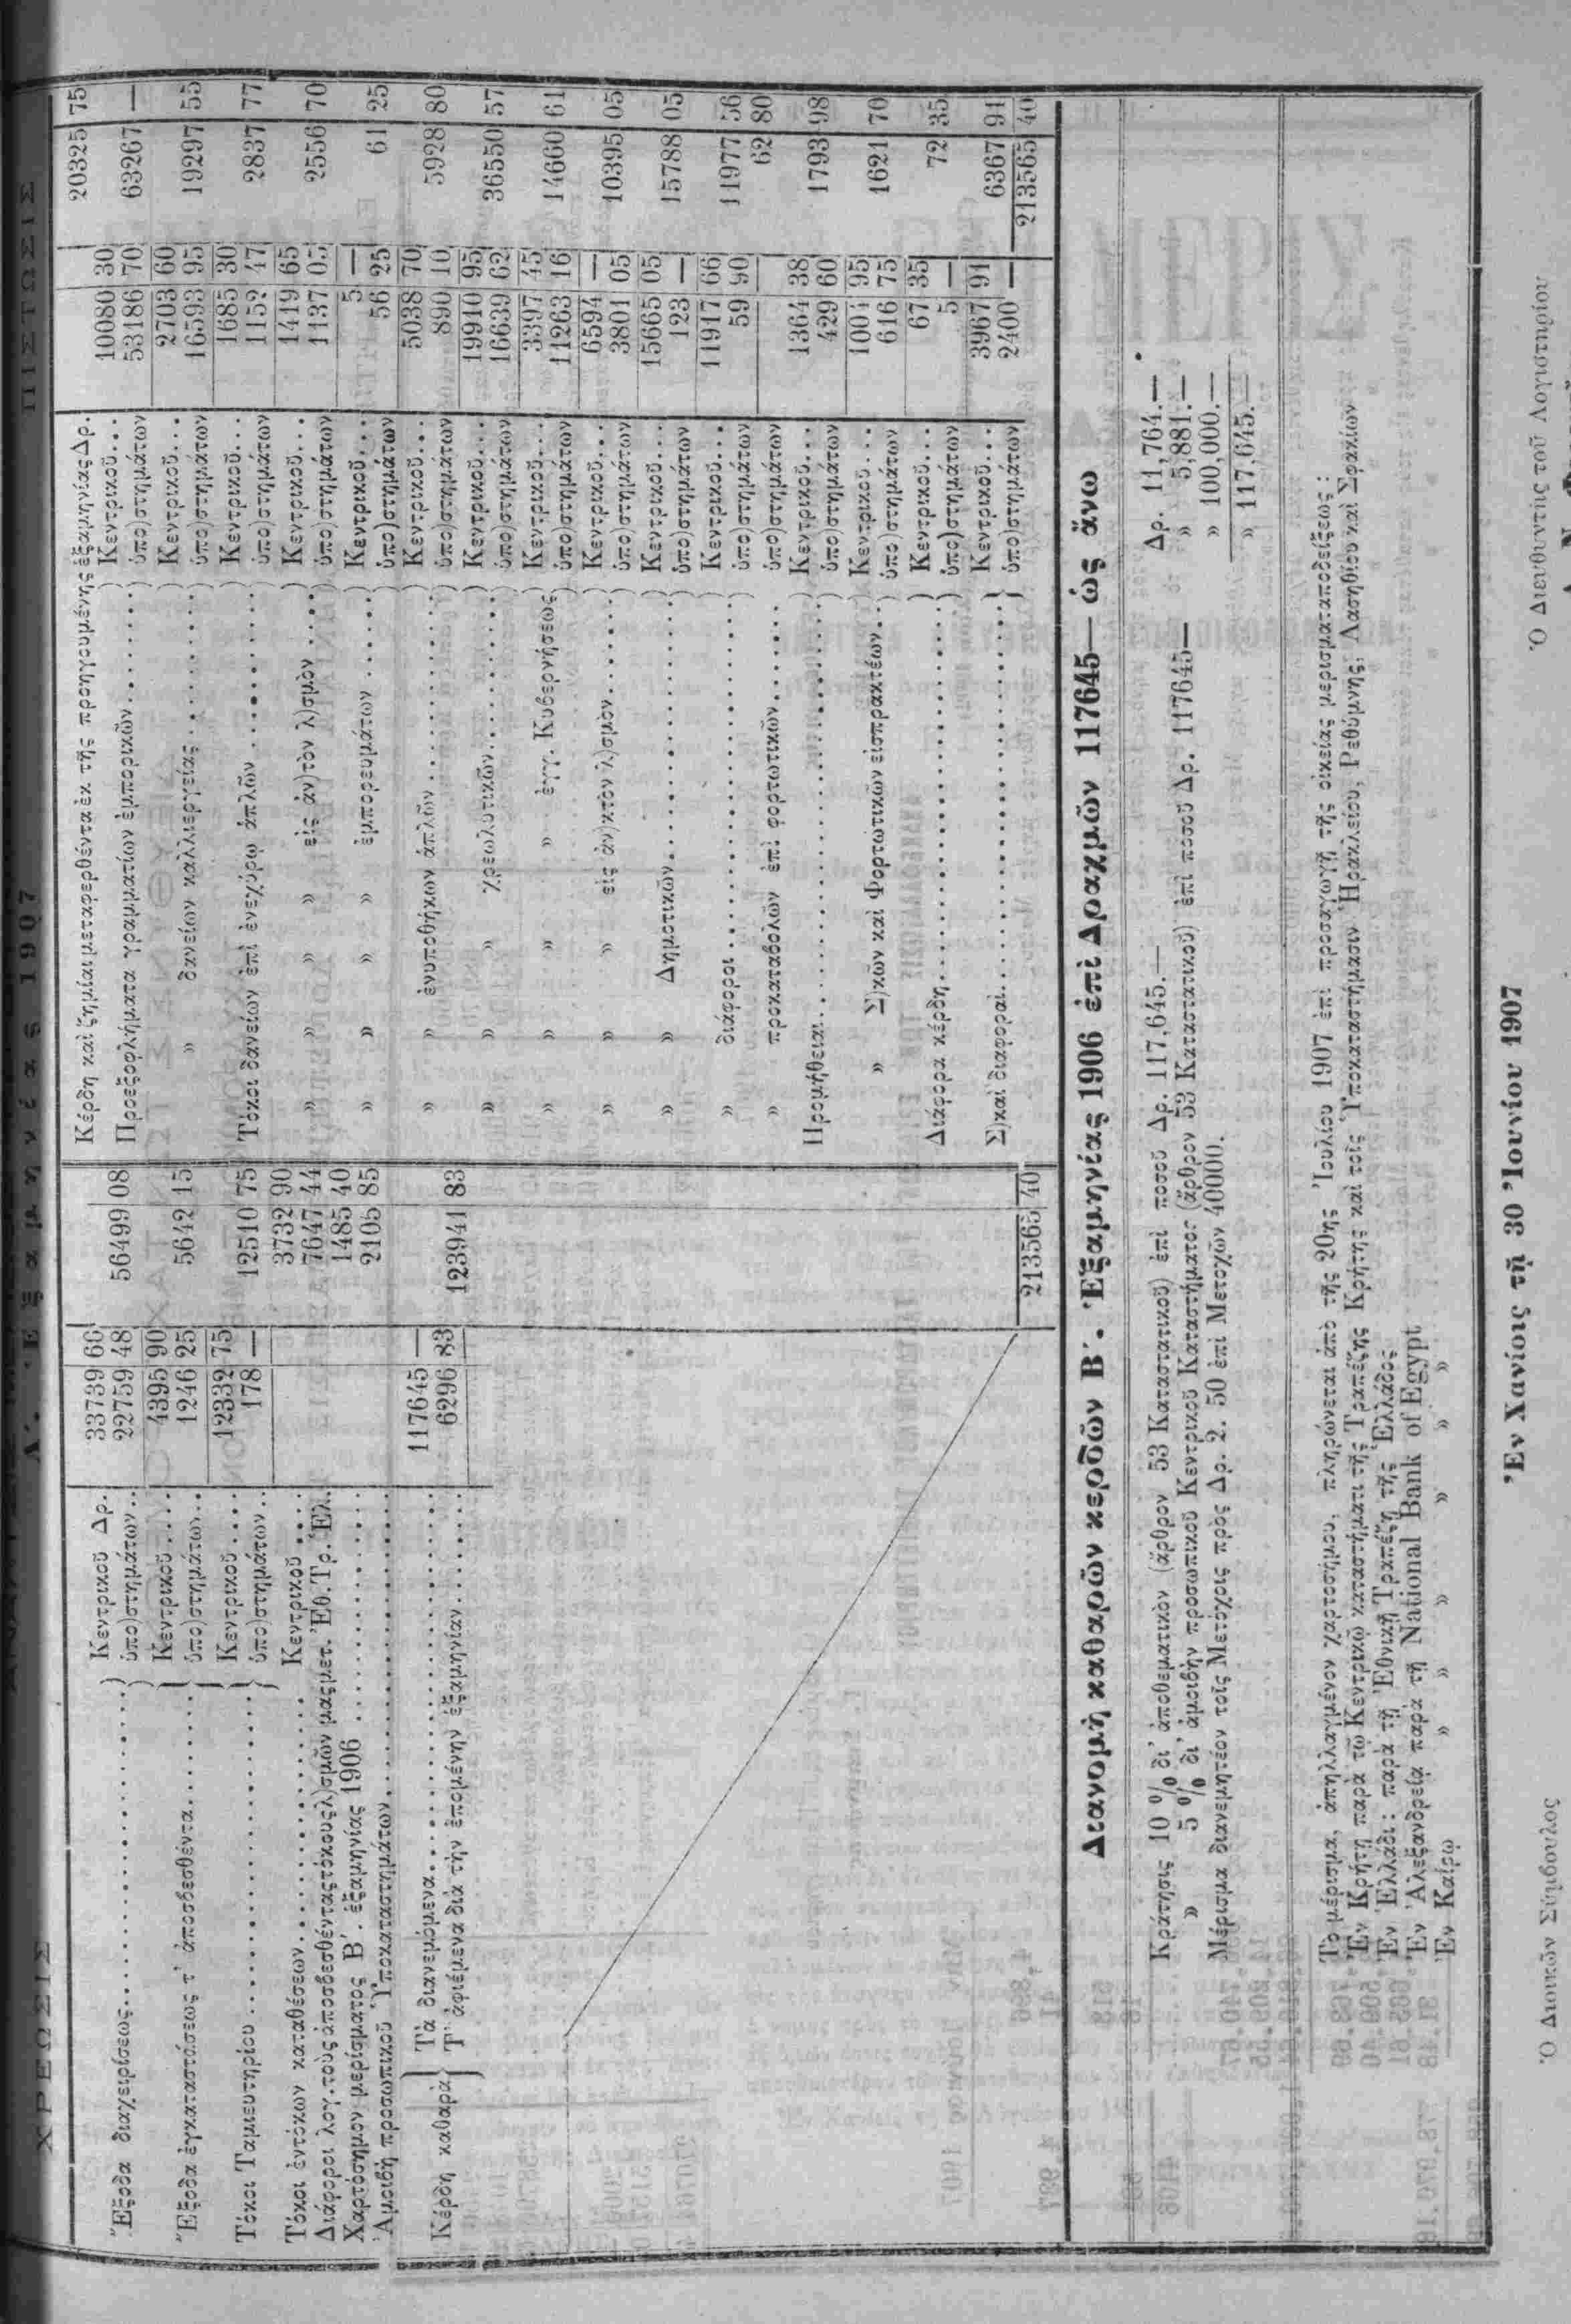 Α΄. Ἑξαμηνίας 1907
ΧΡΕΩΣΙΣ
Ἔξοδα διαχειρίσεως...... Κεντρικοῦ Δρ. 33739 60
ὑπο)στημάτων.. 22759 48 56499 08
Ἔξοδα ἐγκαταστάσεως τ' ἀποσβεσθέντα....... Κεντρικοῦ.... 4395 90
ὑπο)στημάτων... 1246 25 5642 15
Τόκοι Ταμιευτηρίου...... Κεντρικοῦ.... 12332 75
ὑπο)στημάτων.. 178 — 12510 75
Τόκοι ἐντόκων καταθέσεων...... Κεντρικοῦ.... 3732 90
Διάφοροι λογ. τοὺς ἀποσβεσθέντας τόκους λ)σμῶν μας μετ. Ἐθ. Τρ. Ἑλ. 7647 44
Χαρτόσημον μερίσματος Β΄. ἑξαμηνίας 1906...... 1485 40
Ἀμοιβὴ προσωπικοῦ Ὑποκαταστημάτων...... 2105 85
Κέρδη καθαρὰ Τὰ διανεμόμενα...... 117645 —
Τ' ἀφιέμενα διὰ τὴν ἑπομένην ἑξαμηνίαν...... 6296 83 123941 83
213565 40
ΠΙΣΤΩΣΙΣ
Κέρδη καὶ ζημίαι μεταφερθέντα ἐκ τῆς προηγουμένης ἑξαμηνίας Δρ. 20325 75
Προεξοφλήματα γραμματίων ἐμπορικῶν....... Κεντρικοῦ... 10080 30
ὑπο)στημάτων 53186 70 63267 —
» δανείων καλλιεργείας....... Κεντρικοῦ... 2703 60
ὑπο)στημάτων 16593 95 19297 55
Τόκοι δανείων ἐπὶ ἐνεχύρῳ ἁπλῶν....... Κεντρικοῦ... 1685 30
ὑπο)στημάτων 1152 47 2837 77
» » » εἰς ἀν)τὸν λ)σμὸν.... Κεντρικοῦ... 1419 65
ὑπο)στημάτων 1137 05 2556 70
» » » ἐμπορευμάτων...... Κεντρικοῦ... 5 —
ὑπο)στημάτων 56 25 61 25
» » ἐνυποθήκων ἁπλῶν....... Κεντρικοῦ... 5038 70
ὑπο)στηματων 890 10 5928 80
» » » χρεωλυτικῶν....... Κεντρικοῦ... 19910 95
ὑπο)στημάτων 16639 62 36550 57
» » » » ἐγγ. Κυβερνήσεως Κεντρικοῦ... 3397 45
ὑπο)στημάτων 11263 16 14660 61
» » » εἰς ἀν)κτὸν λ)σμὸν....... Κεντρικοῦ... 6594 —
ὑπο)στημάτων 3801 05 10395 05
» » Δημοτικῶν....... Κεντρικοῦ... 15665 05
ὑπο)στημάτων 123 — 15788 05
» διάφοροι....... Κεντρικοῦ... 11917 66
ὑπο)στημάτων 59 90 11977 56
» προκαταβολῶν ἐπὶ φορτωτικῶν....... ὑπο)στημάτων 62 80
Προμήθειαι....... Κεντρικοῦ... 1364 38
ὑπο)στημάτων 429 60 1793 98
» Σ)κῶν καὶ Φορτωτικῶν εἰσπρακτέων.. Κεντρικοῦ... 1004 95
ὑπο)στημάτων 616 75 1621 70
Διάφορα κέρδη....... Κεντρικοῦ... 67 35
ὑπο)στημάτων 5 — 72 35
Σ)καὶ διαφοραὶ....... Κεντρικοῦ... 3967 91
ὑπο)στημάτων 2400 — 6367 91
213565 40
Διανομὴ καθαρῶν κερδῶν Β΄. Ἑξαμηνίας 1906 ἐπὶ Δραχμῶν 117645— ὡς ἄνω
Κράτησις 10 % δι' ἀποθεματικὸν (ἄρθρον 53 Καταστατικοῦ) ἐπὶ ποσοῦ Δρ. 117,645.— Δρ. 11,764.—
» 5 % δι' ἀμοιβὴν προσωπικοῦ Κεντρικοῦ Καταστήματος (ἄρθρον 53 Καταστατικοῦ) ἐπὶ ποσοῦ Δρ. 117645— » 5,881.—
Μέρισμα διανεμητέον τοῖς Μετόχοις πρὸς Δρ. 2. 50 ἐπὶ Μετοχῶν 40000. » 100,000.—
» 117,645.—
Τὸ μέρισμα, ἀπηλλαγμένον χαρτοσήμου, πληρώνεται ἀπὸ τῆς 20ης Ἰουλίου 1907 ἐπὶ προσαγωγῇ τῆς οἰκείας μερισματαποδείξεως :
Ἐν Κρήτῃ παρὰ τῷ Κεντρικῷ καταστήματι τῆς Τραπέζης Κρήτης καὶ τοῖς Ὑποκαταστήμασιν Ἡρακλείου, Ρεθύμνης, Λασηθίου καὶ Σφακίων
Ἐν Ἑλλάδι : παρὰ τῇ Ἐθνικῇ Τραπέζῃ τῆς Ἑλλάδος
Ἐν Ἀλεξανδρείᾳ παρὰ τῇ National Bank of Egypt
Ἐν Καΐρῳ » » » » » »
Ἐν Χανίοις τῇ 30 Ἰουνίου 1907
Ὁ Διοικῶν Σύμβουλος
Ὁ Διευθυντὴς τοῦ Λογιστηρίου